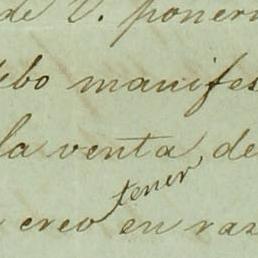 de V. poner
ebo manifes
la venta, de
tener
creo en raz